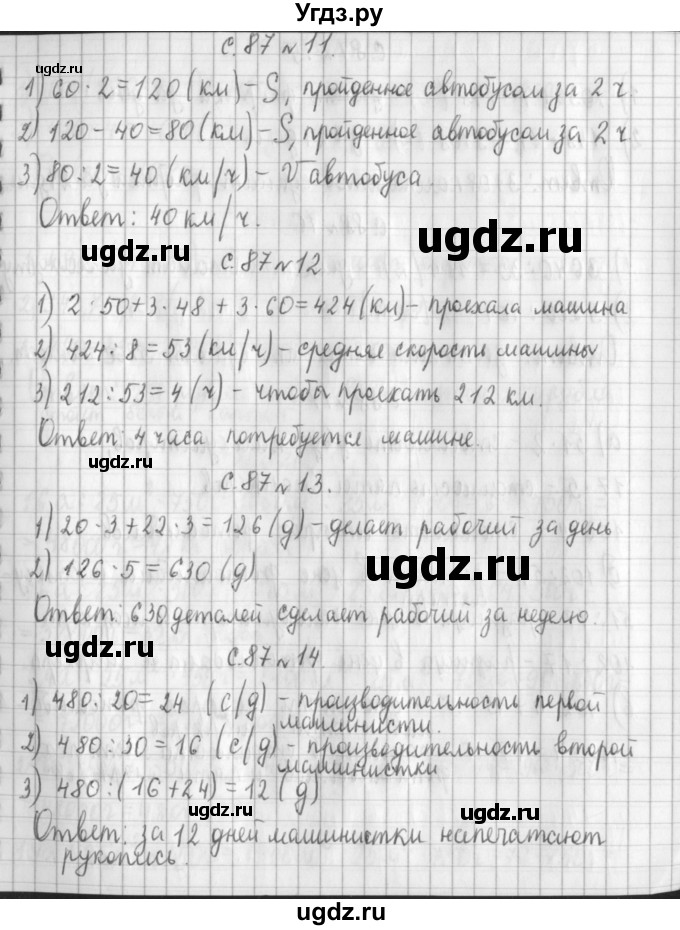 Угдз.ру
с.87 № 11.
ugdz.ru
1) 60 · 2 = 120 (км) – S, пройденное автобусом за 2 ч.
2) 120 – 40 = 80 (км) – S, пройденное автобусом за 2 ч
3) 80 : 2 = 40 (км/ч) – V автобуса
Ответ: 40 км/ч.
ugdz.ru
ugdz.ru
с.87 № 12
1) 2 · 50 + 3 · 48 + 3 · 60 = 424 (км) – проехала машина
2) 424 : 8 = 53 (км/ч) – средняя скорость машины
3) 212 : 53 = 4 (ч) – чтобы проехать 212 км.
Ответ: 4 часа потребуется машине.
ugdz.ru
с.87 № 13.
1) 20 · 3 + 22 · 3 = 126 (д) – делает рабочий за день
2) 126 · 5 = 630 (д)
ugdz.ru
Ответ: 630 деталей сделает рабочий за неделю.
с.87 № 14.
ugdz.ru
1) 480 : 20 = 24 (с/д) – производительность первой
машинисти.
2) 480 : 30 = 16 (с/д) – производительность второй
машинистки
3) 480 : (16 + 24) = 12 (д)
ugdz.ru
ugdz.ru
Ответ: за 12 дней машинистки напечатают
рукопись.
ugdz.ru
ugdz.ru